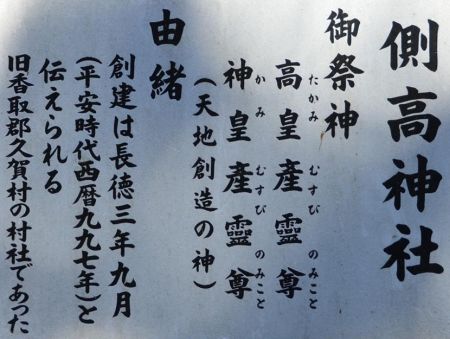 側高神社
御祭神
高皇産靈尊
たかみ むすび のみこと
神皇産靈尊
かみ むすび のみこと
(天地創造の神)
由緒
創建は長徳三年九月
(平安時代西暦九九七年)と
伝えられる
旧香取郡久賀村の村社であった